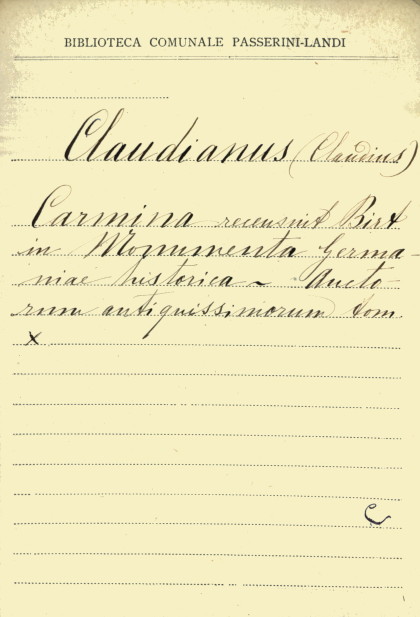 BIBLIOTECA COMUNALE PASSERINI-LANDI
Claudianus (Claudius)
Carmina recensuit Birt
in Monumenta Germa-
niae historica ~ Aucto-
rum antiquissimorum tom
x
C